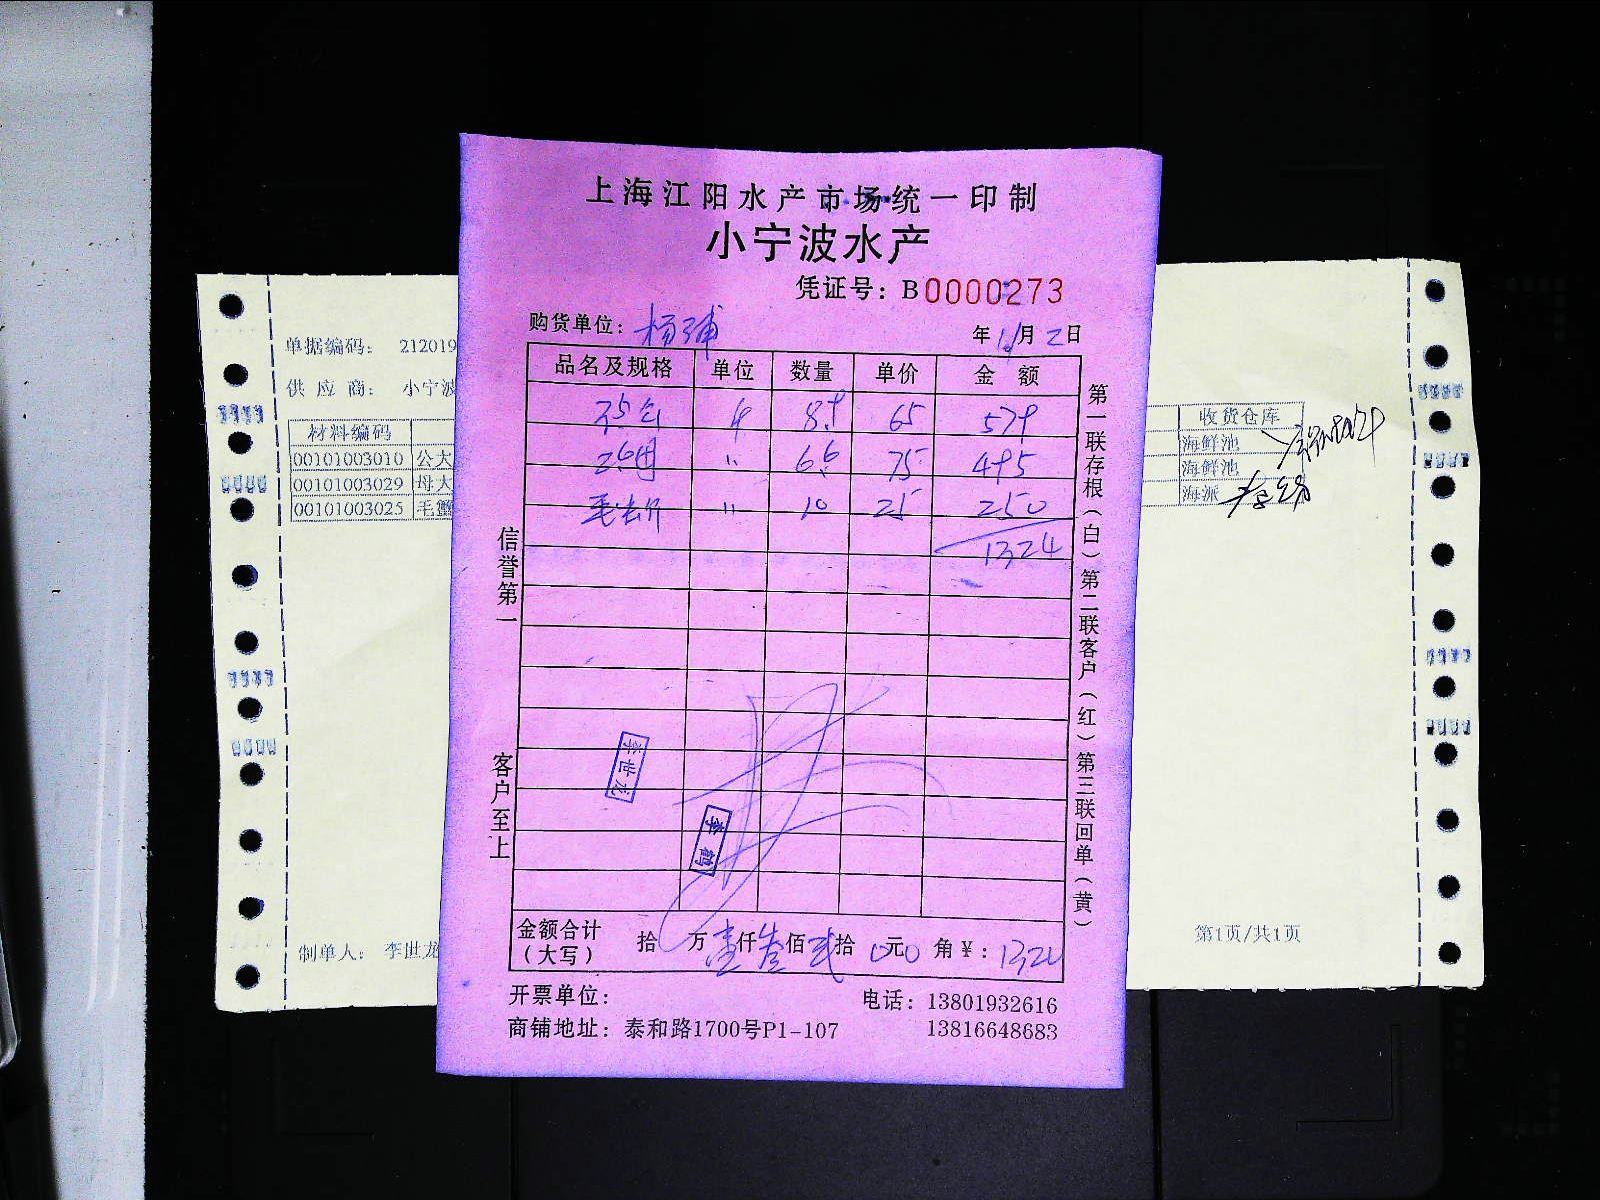 上海江阳水产市场统一印制
小宁波水产
凭证号：B0000273
购货单位：杨浦
年11月2日
品名及规格 单位 数量 单价 金额
8.9 65 579
6.6 75 495
10 25 250
1324
信誉第一
客户至上
第一联存根（白）第二联客户（红）第三联回单（黄）
李世龙
李鹤
金额合计（大写） 拾 万壹仟叁佰贰拾 0元0 角￥：1320
开票单位：
电话：13801932616
商铺地址：泰和路1700号P1-107
13816648683
单据编码： 212019
供应商： 小宁波
材料编码
00101003010 公大
00101003029 母大
00101003025 毛蟹
收货仓库
海鲜池
海鲜池
海派
制单人： 李世龙
第1页/共1页